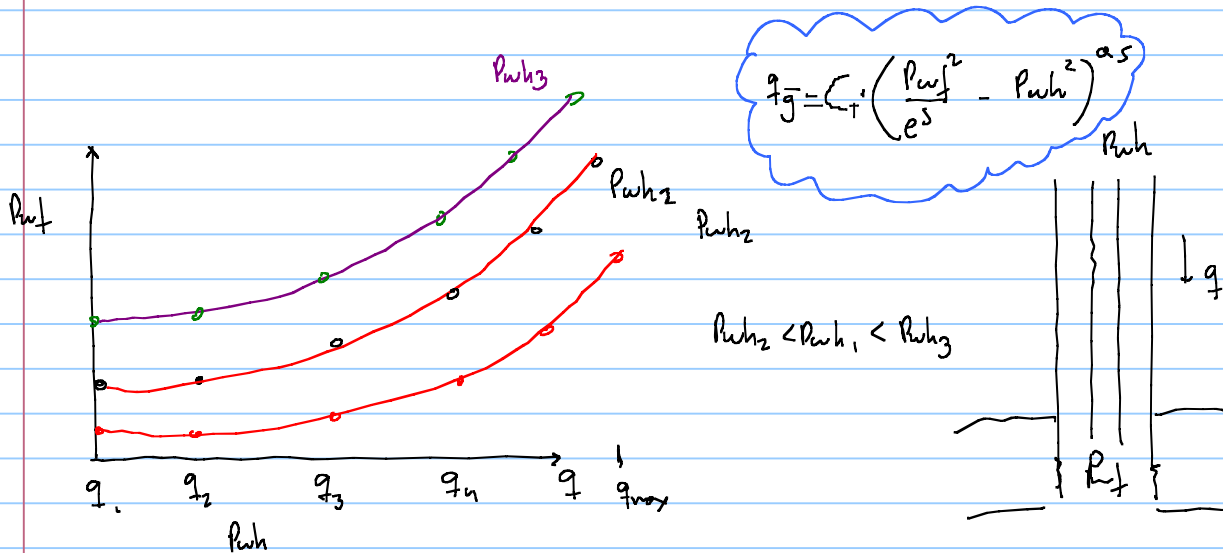 Pwh3
qg = CT · (Pwf² / e^s - Pwh²)^0.5
Pwh
Pwf
Pwh2
Pwh2
↓ q
Pwh2 < Pwh1 < Pwh3
q1 q2 q3 q4 q qmax
Pwf
Pwh